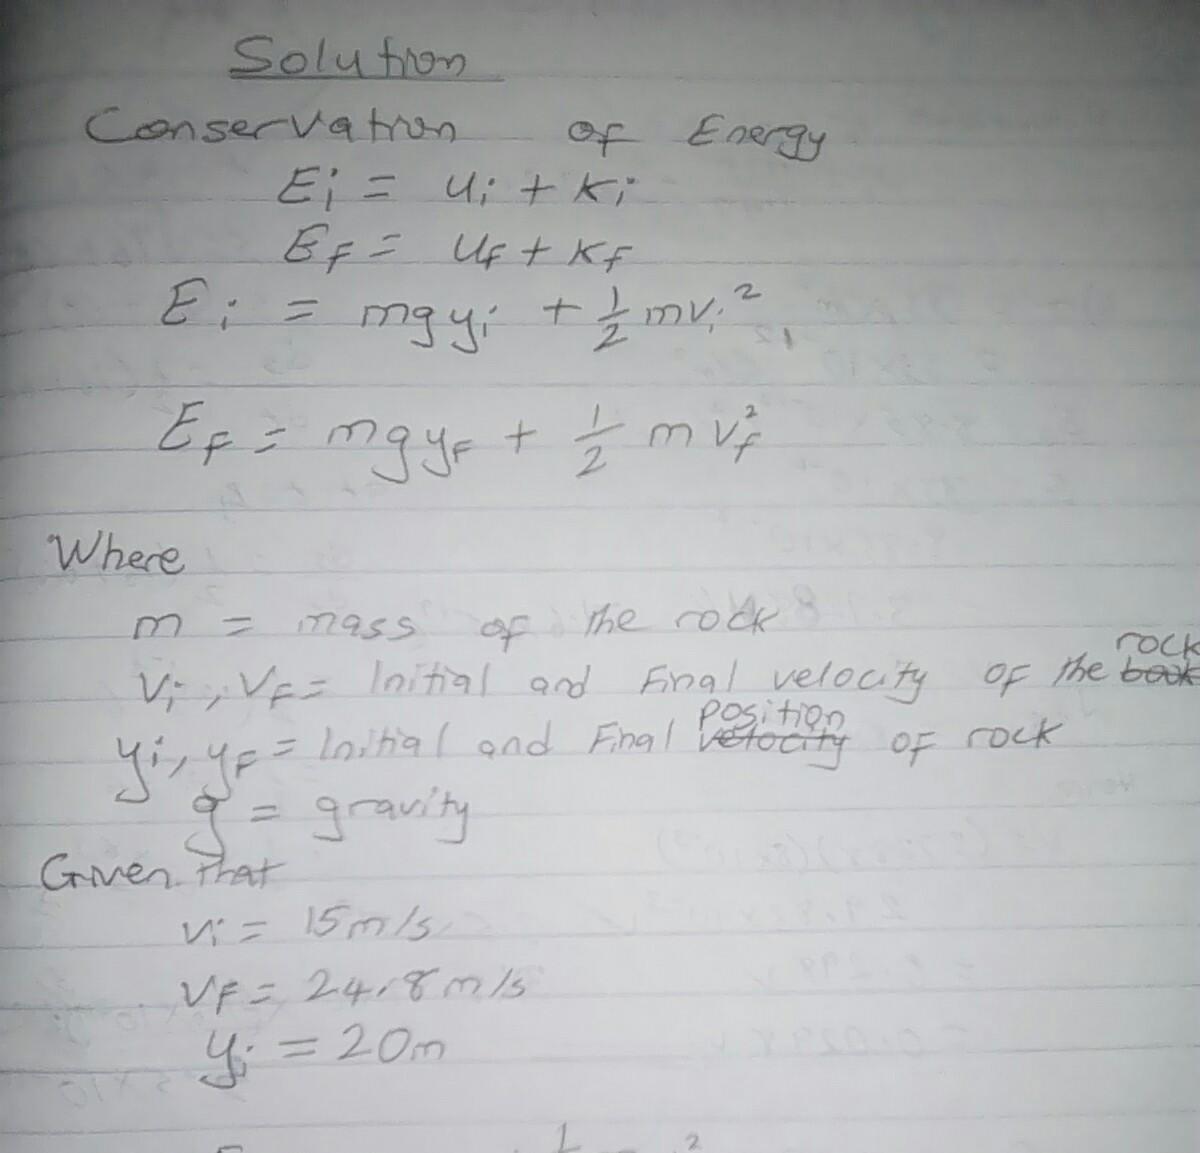 Solution
Conservation of Energy
Ei = Ui + Ki
EF = Uf + Kf
Ei = mgyi + 1/2 mvi²
EF = mgyF + 1/2 mvf²
Where
m = mass of the rock
Vi, VF = Initial and Final velocity of the book rock
yi, yF = Initial and Final velocity position of rock
g = gravity
Given that
vi = 15m/s
VF = 24.8m/s
yi = 20m